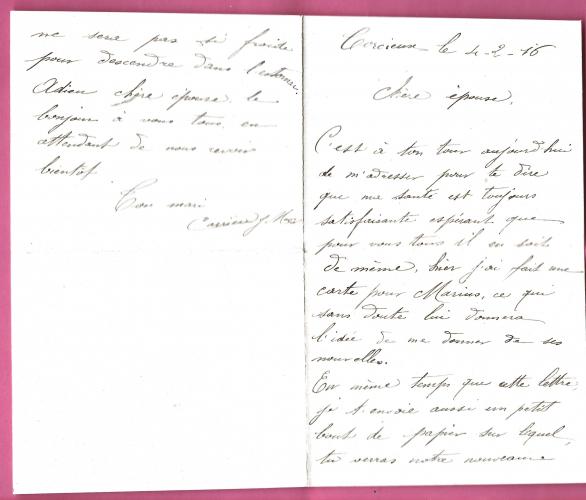 Corcieux le 4-2-16
Chère épouse,
C'est à ton tour aujourd'hui
de m'adresser pour te dire
que ma santé est toujours
satisfaisante espérant que
pour vous tous il en soit
de même, hier j'ai fait une
carte pour Marius, ce qui
sans doute lui donnera
l'idée de me donner de ses
nouvelles.
En même temps que cette lettre,
je t'envoie aussi un petit
bout de papier sur lequel,
tu verras notre nouveau
ne sera pas si froide
pour descendre dans l'estomac.
Adieu chère épouse, le
bonjour à vous tous en
attendant de nous revoir
bientot.
Ton mari